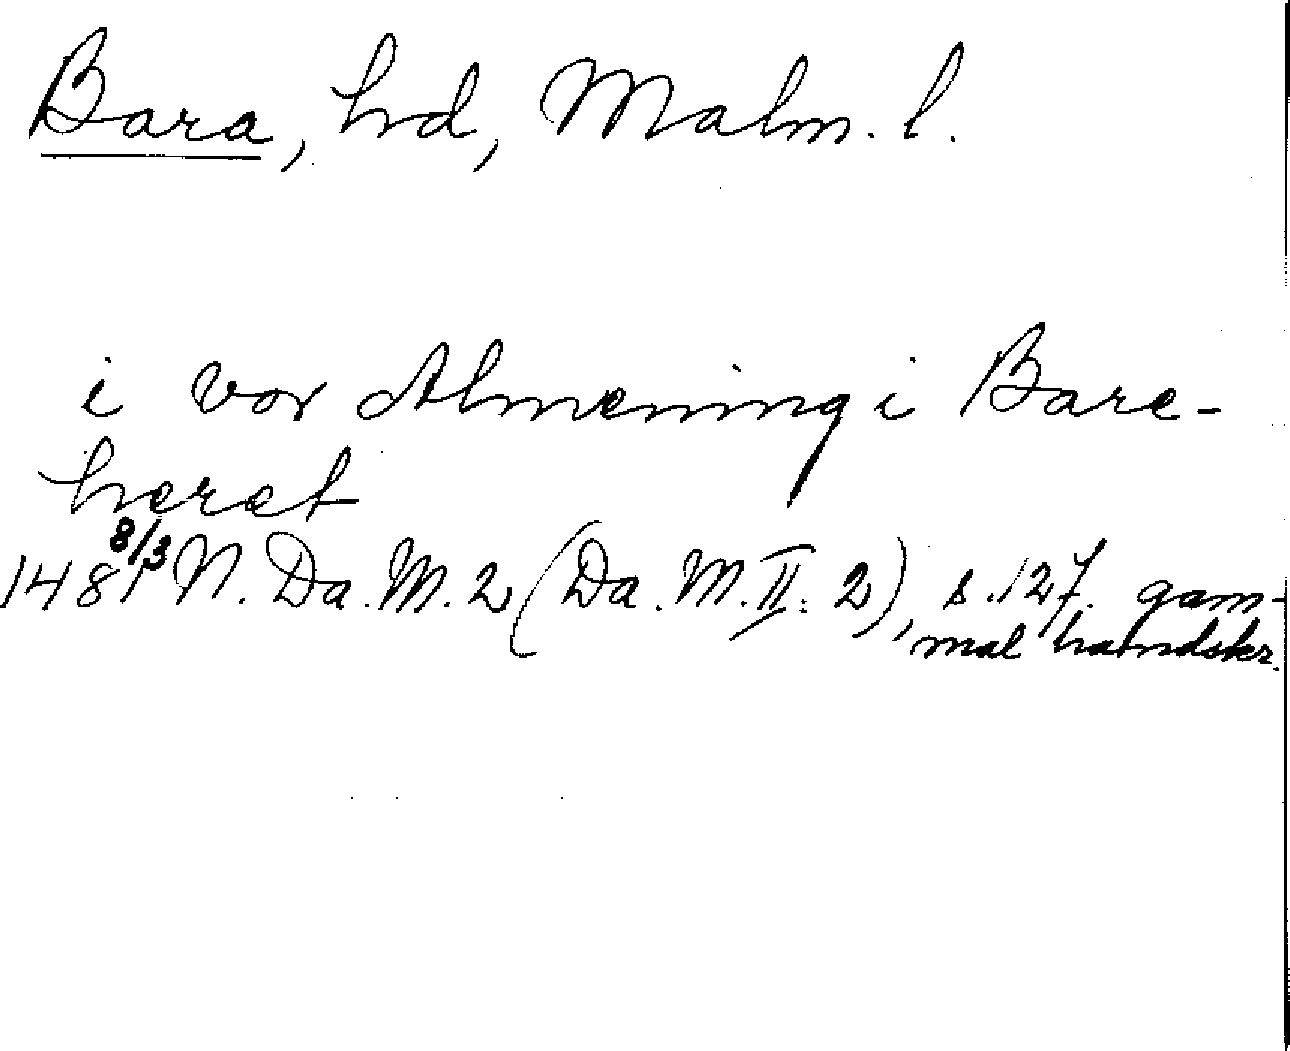 Bara, hd, Malm. l.
i vor Almening i Bare-
heret
1481 8/3 N. Da. M. 2 (Da. M. II: 2), s. 127. gam-
mal handskr.